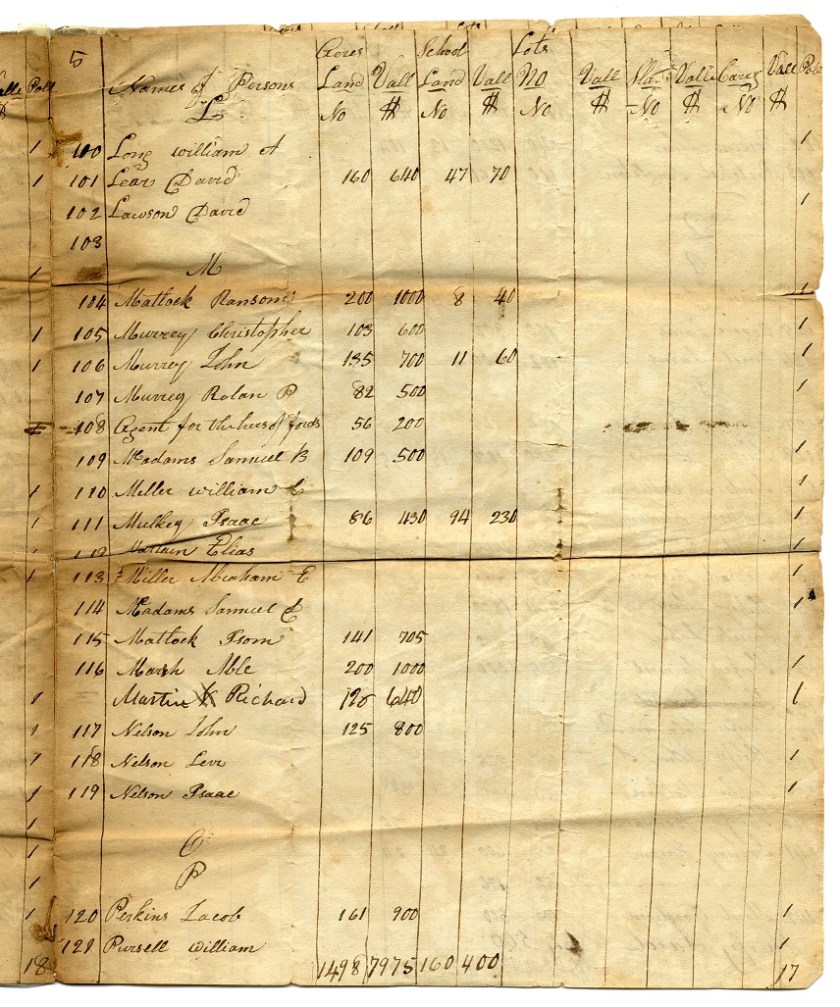 5 Acres School Lots
Valle Poll Names of Persons Land Vall Land Vall NO Vall Sla Vall Carez Vall Pole
$ L No $ No $ No $ No $ No $
1 100 Long William A 1
1 101 Lear David 160 640 47 70
102 Lawson David 1
103
1 M
104 Matlock Ransom 200 1000 8 40 1
1 105 Murrey Christopher 103 600 1
1 106 Murrey John 135 700 11 60 1
107 Murrey Rolan P 82 500 1
108 Agent for the heirs of fords 56 200
109 McAdams Samuel B 109 500 1
1 110 Meller William C 1
1 111 Mulkey Isaac 86 430 94 230 1
1 112 Martain Elias 1
1 113 Miller Abraham E 1
114 McAdams Samuel C 1
115 Matlock Isom 141 705
116 Marsh Able 200 1000 1
1 Martin Richard 120 640 1
1 117 Nelson John 125 800
1 118 Nelson Levi 1
1 119 Nelson Isaac 1
1
1 O
1 P
1 120 Perkins Jacob 161 900 1
121 Pursell William 1
18 1498 7975 160 400 17